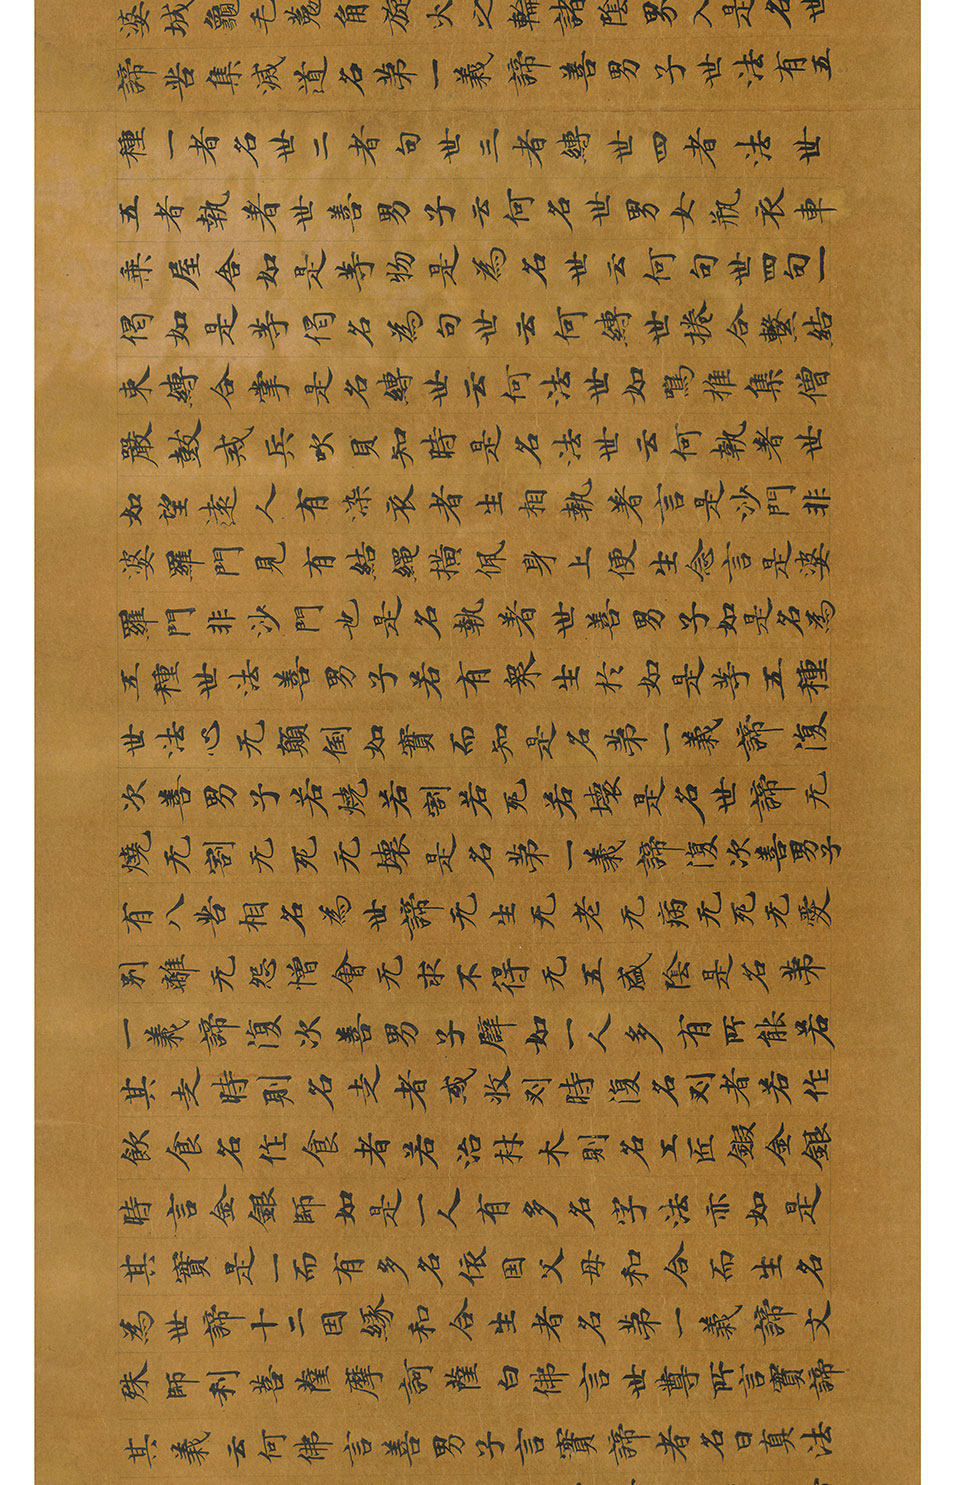 婆城龜毛菟角旋火之輪諸陰界入是名世
諦苦集滅道名第一義諦善男子世法有五
種一者名世二者句世三者縛世四者法世
五者執著世善男子云何名世男女瓶衣車
乘屋舍如是等物是為名世云何句世四句一
偈如是等偈名為句世云何縛世捲合繫結
束縛合掌是名縛世云何法世如鳴椎集僧
嚴鼓戒兵吹貝知時是名法世云何執著世
如望遠人有染衣者生相執著言是沙門非
婆羅門見有結繩橫佩身上便生念言是婆
羅門非沙門也是名執著世善男子如是名為
五種世法善男子若有衆生於如是等五種
世法心无顛倒如實而知是名第一義諦復
次善男子若燒若割若死若壞是名世諦无
燒无割无死无壞是名第一義諦復次善男子
有八苦相名為世諦无生无老无病无死无愛
別離无怨憎會无求不得无五盛陰是名第
一義諦復次善男子譬如一人多有所能若
其走時則名走者或收刈時復名刈者若作
飲食名作食者若治材木則名工匠鍛金銀
時言金銀師如是一人有多名字法亦如是
其實是一而有多名依因父母和合而生名
為世諦十二因緣和合生者名第一義諦文
殊師利菩薩摩訶薩白佛言世尊所言實諦
其義云何佛言善男子言實諦者名曰真法